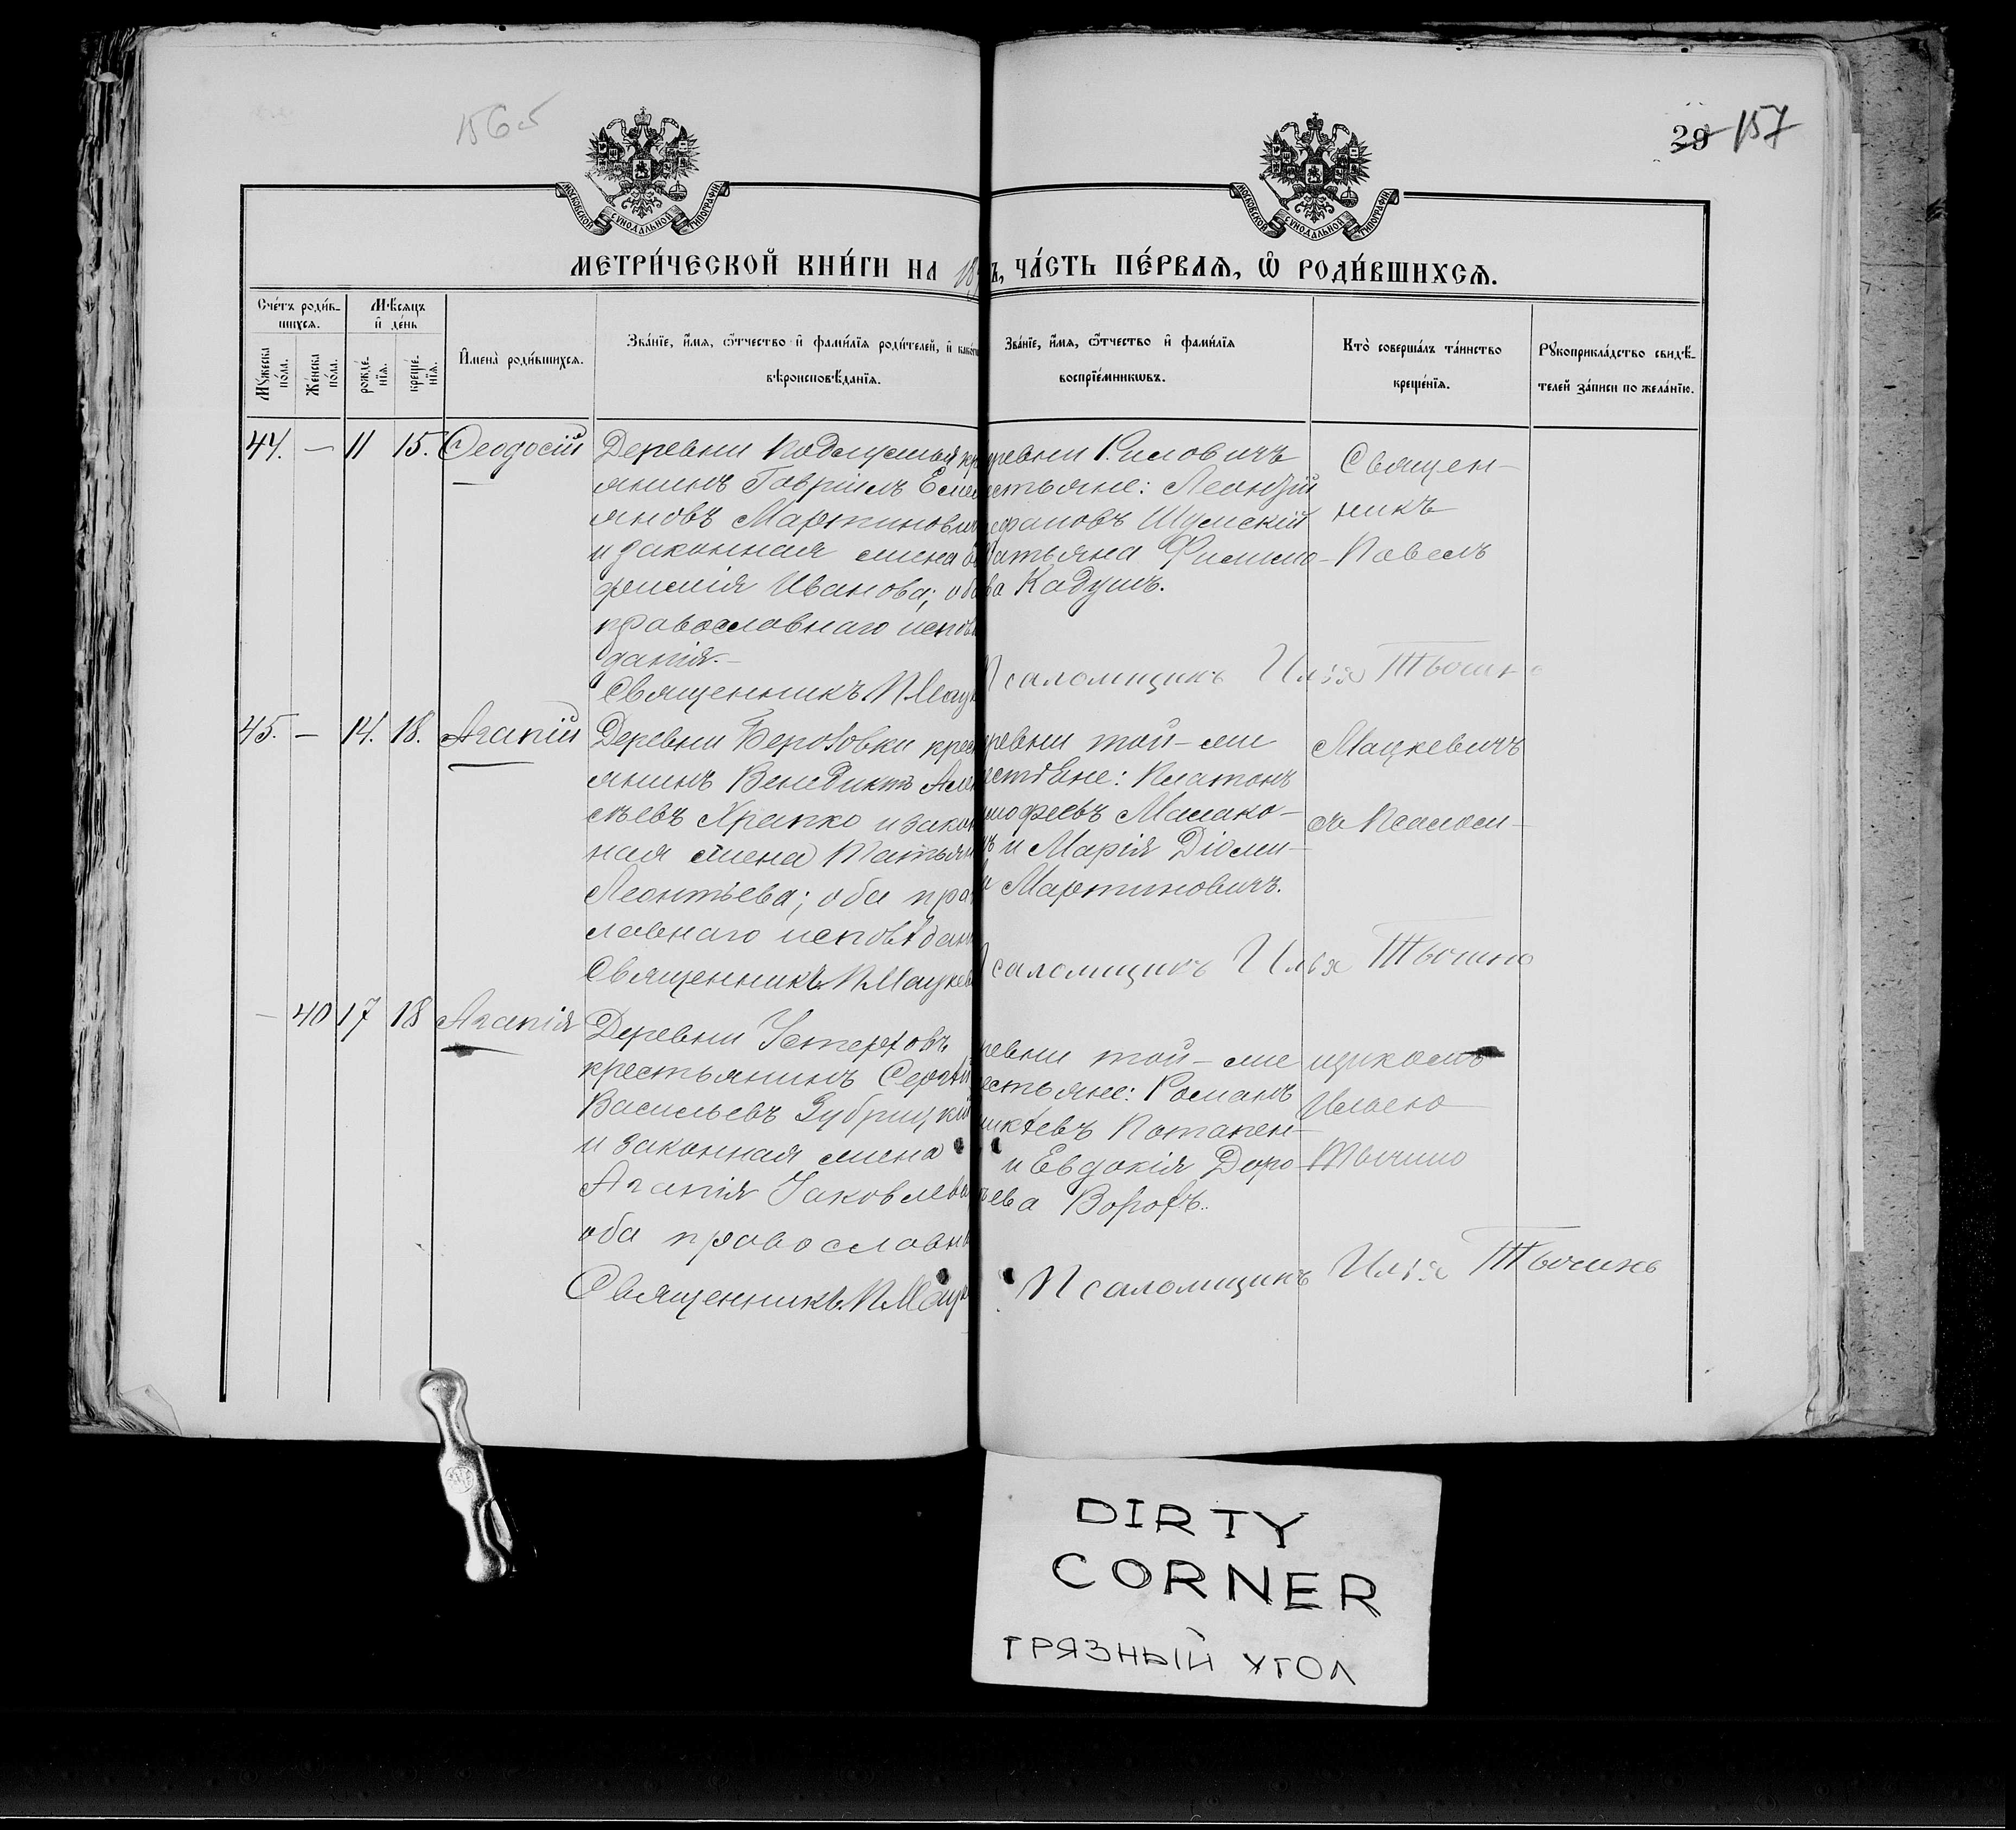 156об
29 157
МОСКОВСКОЙ СУНОДАЛЬНОЙ ТИПОГРАФІИ
МОСКОВСКОЙ СУНОДАЛЬНОЙ ТИПОГРАФІИ
МЕТРИ́ЧЕСКОЙ КНИ́ГИ НА 18
Ъ, ЧА́СТЬ ПЕ́РВАЯ, Ѽ РОДИ́ВШИХСЯ.
Сче́тъ роди́в-
шихся.
Мѣсяцъ
и҆ де́нь
Мꙋжеска
по́ла.
Же́нска
по́ла.
рожде́-
нїя.
креще́-
нїя.
И҆мена̀ роди́вшихся.
Зва́нїе, и҆́мя, ѻ҆́тчество и҆ фами́лїя роди́телей, и҆ како́гѡ
вѣроисповѣ́данїя.
Зва́нїе, и҆́мя, ѻ҆́тчество и҆ фами́лїя
воспрїе́мникѡвъ.
Кто̀ соверша́лъ та́инство
креще́нїя.
Рꙋкоприкла́дство свидѣ́-
телей за́писи по жела́нїю.
44. — 11 15. Ѳеодосій
Деревни
янинъ Гавріилъ Емел
яновъ Мартинович
и законная жена
фимія Иванова; оба
православнаго испов
данія.—
Священникъ П. Мацк
ревни
естьяне: Леонтій
ефановъ Шумскій
атьяна Филимо-
ва Кадушъ.
Псаломщикъ Илья Тычино
Священ-
никъ
Павелъ
45. — 14. 18. Агапій
Деревни Березовки крес
янинъ Венедиктъ Але
сѣевъ Храпко и закон
ная жена Татьян
Леонтьева; оба прав
славнаго исповѣдан
Священникъ П. Мацкев
ревни той-же
естьяне: Платонъ
имофеевъ Малахо-
ъ и Марія Діоми-
Мартиновичъ.
Псаломщикъ Илья Тычино
Мацкевичъ
съ Псалом-
— 40 17 18 Агапія
Деревни
крестьянинъ Сергѣй
Васильевъ Зубрицкій
и законная жена
Агапія Іаковлева
оба православн
Священникъ П. Мацк
ревни той-же
естьяне: Романъ
Потапен-
и Евдокія Доро-
ѣева
Псаломщикъ Илья Тычино
щикомъ
Ильею
Тычино
DIRTY
CORNER
ГРЯЗНЫЙ УГОЛ